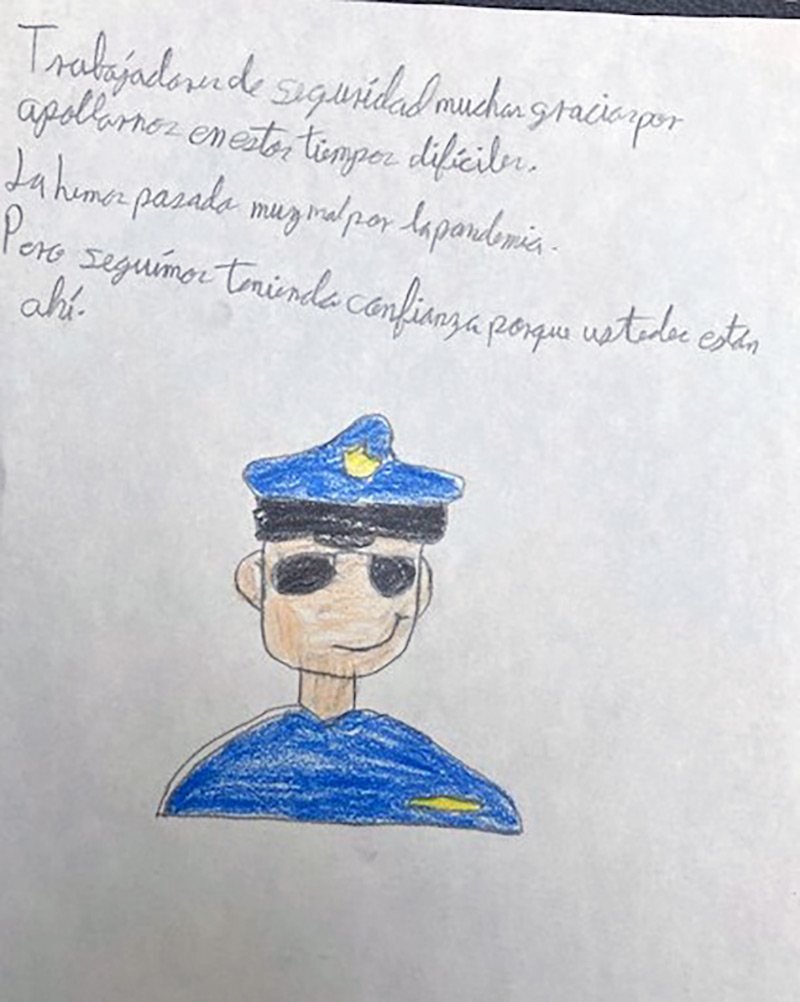 Trabajadores de seguridad muchas gracias por
apollarnos en estos tiempos difíciles.
La hemos pasado muy mal por la pandemia.
Pero seguimos teniendo confianza porque ustedes están
ahí.